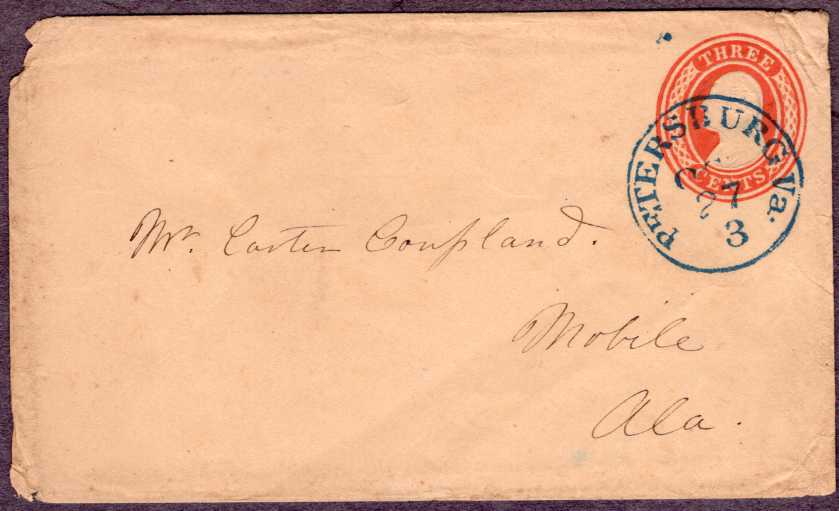 THREE
CENTS
PETERSBURG Va.
7
3
Mr. Carter Coupland.
Mobile
Ala.